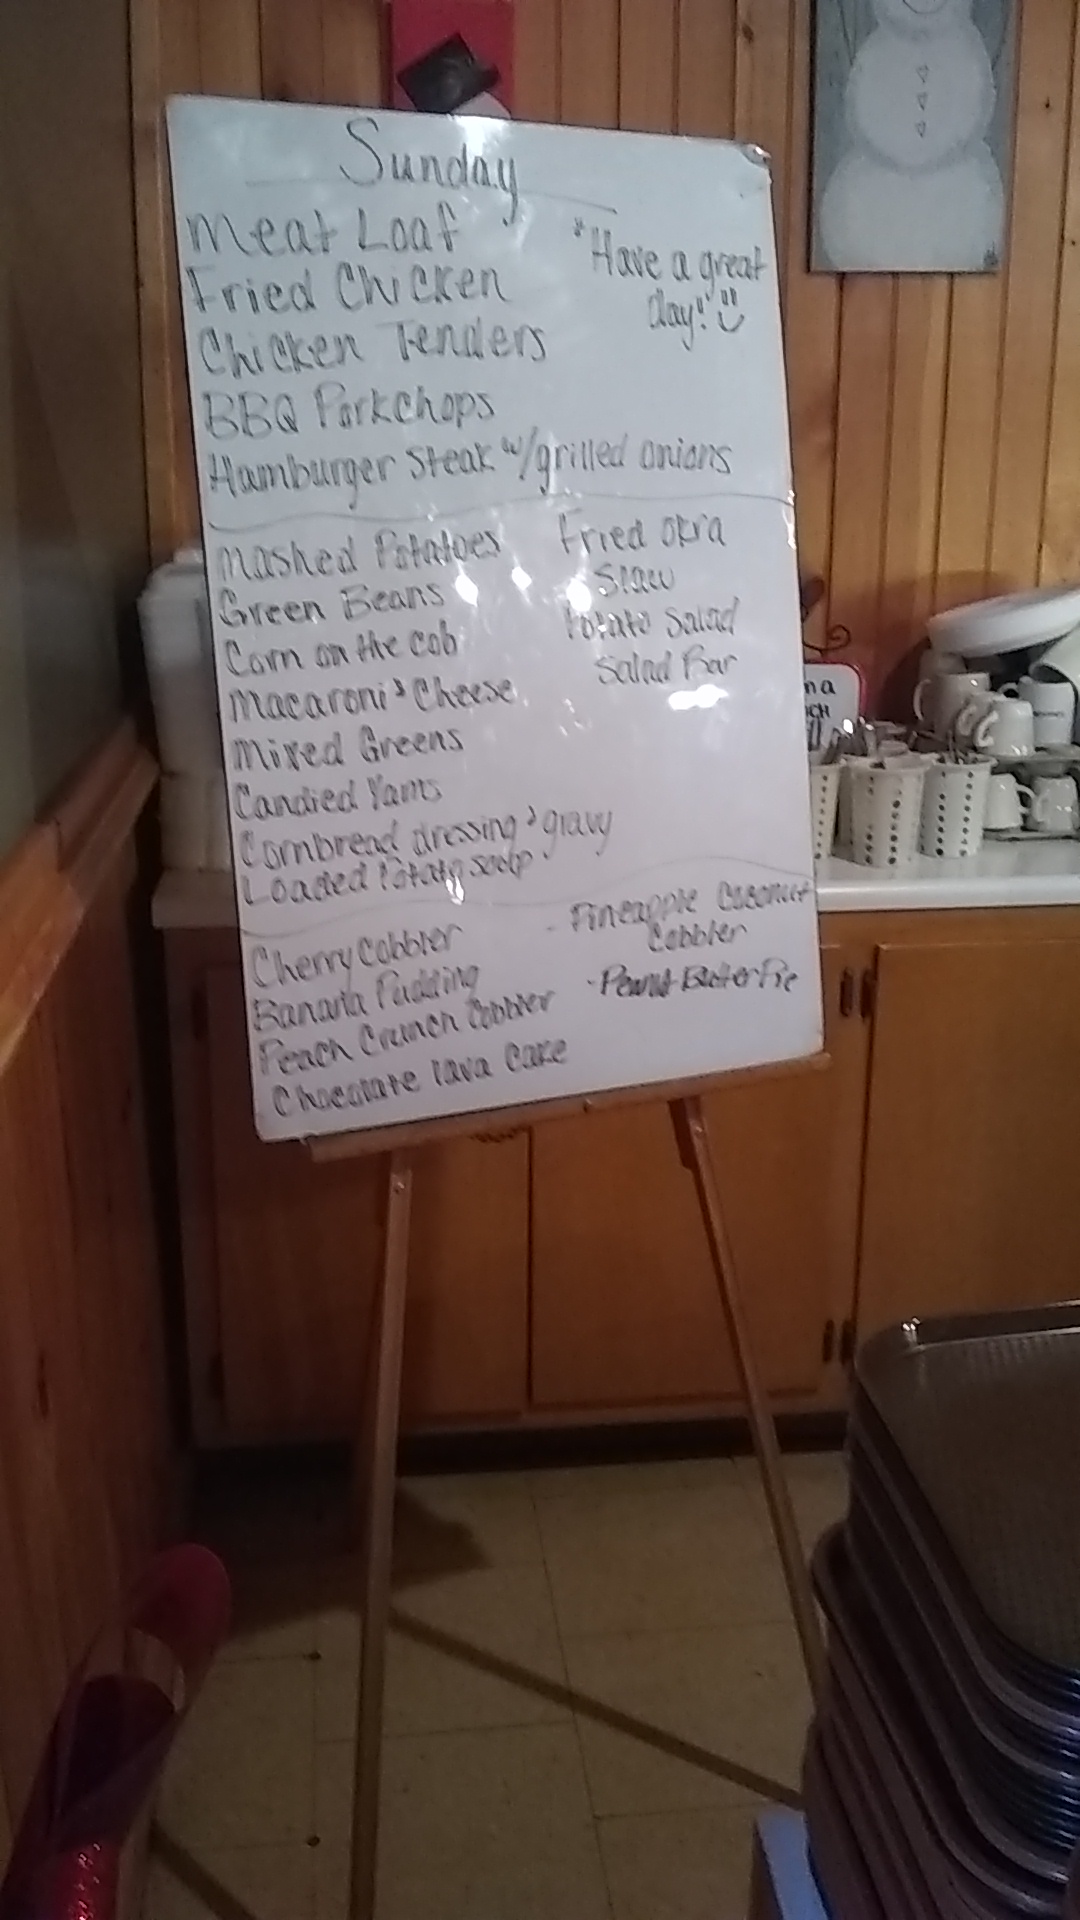 Sunday
Meat Loaf
Fried Chicken
Chicken Tenders
BBQ Porkchops
Hamburger Steak w/grilled onions
"Have a great
day!" ü
Mashed Potatoes
Green Beans
Corn on the cob
Macaroni & Cheese
Mixed Greens
Candied Yams
Cornbread dressing & gravy
Loaded Potato soup
Fried okra
Slaw
Potato Salad
Salad Bar
Cherry Cobbler
Banana Pudding
Peach Crunch Cobbler
Chocolate lava cake
- Pineapple Coconut
Cobbler
- Peanut Butter Pie